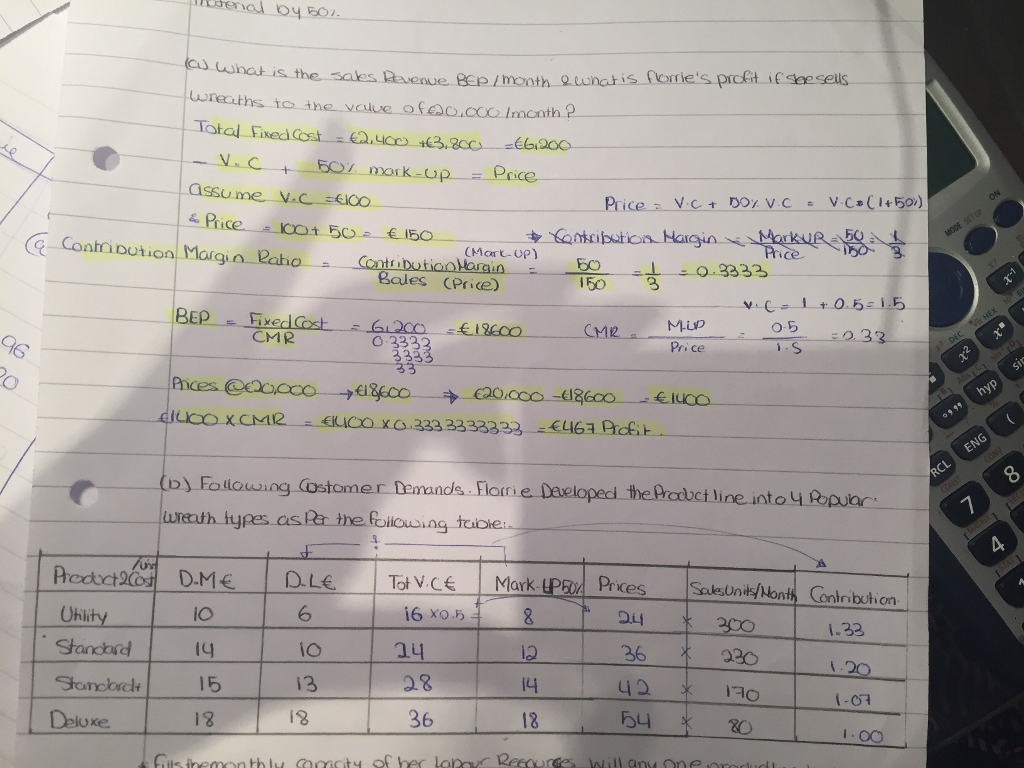 material by 50%.
(a) What is the sales Revenue BEP/month & what is florrie's profit if she sells
wreaths to the value of €20,000/month?
Total Fixed Cost = €2,400 + €3,800 = €6,200
- V.C + 50% mark-up = Price
assume V.C = €100
Price = V.C + 50% V.C = V.C * (1+50%)
& Price = 100 + 50 = €150
→ Contribution Margin = MarkUP/Price = 50/150 = 1/3
Contribution Margin Ratio = Contribution Margin (Mark-UP) / Sales (Price) = 50/150 = 1/3 = 0.3333
V.C = 1 + 0.5 = 1.5
BEP = Fixed Cost / CMR = 6,200 / 0.3333 3333 33 = €18600
CMR = M.UP / Price = 0.5 / 1.5 = 0.33
Prices @ €20,000 → €18600 → €20,000 - €18600 = €1400
€1400 x CMR = €1400 x 0.3333333333 = €467 Profit.
(b) Following Costomer Demands. Florrie Developed the Product line into 4 Popular.
wreath types as Per the following table:-
Product & Cost /Unit D.M € D.L € Tot V.C € Mark-UP 50% Prices Sales Units/Month Contribution
Utility 10 6 16 x 0.5 = 8 24 x 300 1.33
Standard 14 10 24 12 36 x 230 1.20
Standard+ 15 13 28 14 42 x 170 1.07
Deluxe 18 18 36 18 54 x 80 1.00
fills the monthly capacity of her labour Resources, will any one
96
20
ON
MODE
SETUP
x⁻¹
x²
hyp
sin
RCL
ENG
(
7
8
4
1